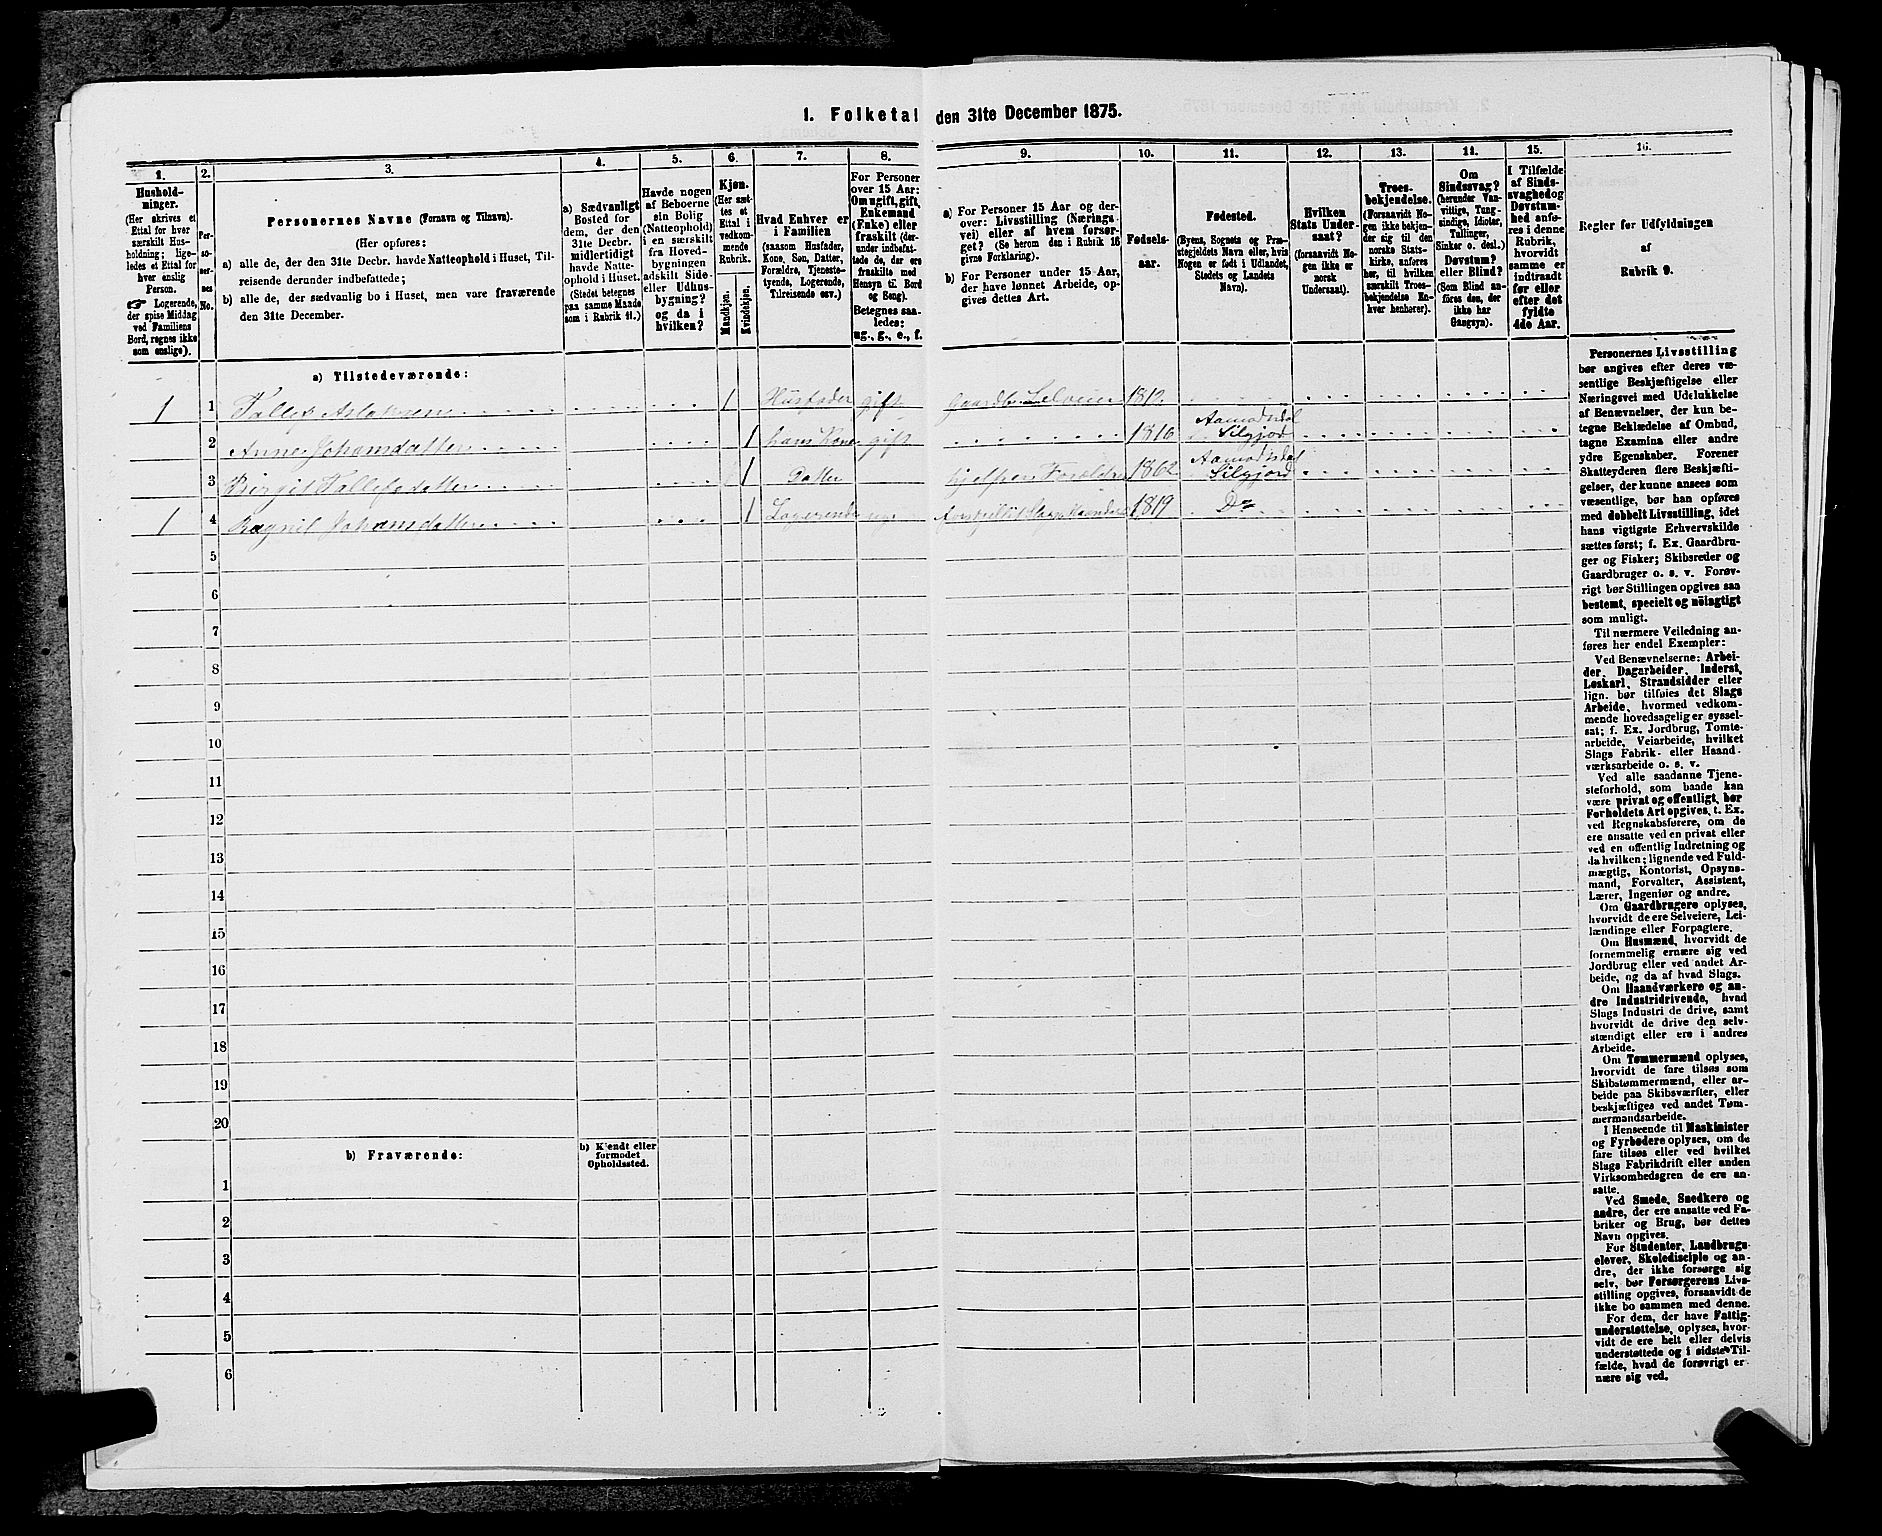 1. Folketal den 31te December 1875.
1.
Hushold-
ninger.
(Her skrives et
Ettal for hver
særskilt Hus-
holdning; lige-
ledes et Ettal for
hver enslig
Person.
Logerende,
der spise Middag
ved Familiens
Bord, regnes ikke
som enslige).
2.
Per-
so-
ner-
nes
No.
3.
Personernes Navne (Fornavn og Tilnavn).
(Her opføres:
a) alle de, der den 31te Decbr. havde Natteophold i Huset, Til-
reisende derunder indbefattede;
b) alle de, der sædvanlig bo i Huset, men vare fraværende
den 31te December.
4.
a) Sædvanligt
Bosted for
dem, der den
31te Decbr.
midlertidigt
havde Natte-
ophold i Huset.
(Stedet betegnes
paa samme Maade
som i Rubrik 11.)
5.
Havde nogen
af Beboerne
sin Bolig
(Natteophold)
i en særskilt
fra Hoved-
bygningen
adskilt Side-
eller Udhus-
bygning?
og da i
hvilken?
6.
Kjøn.
(Her sæt-
tes et
Ettal i
vedkom-
mende
Rubrik.
Mandkjøn.
Kvindekjøn.
7.
Hvad Enhver er
i Familien
(saasom Husfader,
Kone, Søn, Datter,
Forældre, Tjeneste-
tyende, Logerende,
Tilreisende osv.)
8.
For Personer
over 15 Aar:
Om ugift, gift,
Enkemand
(Enke) eller
fraskilt (der-
under indbefat-
tede de, der ere
fraskilte med
Hensyn til Bord
og Seng).
Betegnes saa-
ledes:
ug., g., e., f.
9.
a) For Personer 15 Aar og der-
over: Livsstilling (Nærings-
vei) eller af hvem forsør-
get? (Se herom den i Rubrik 16
givne Forklaring).
b) For Personer under 15 Aar,
der have lønnet Arbeide, op-
gives dettes Art.
10.
Fødsels-
aar.
11.
Fødested.
(Byens, Sognets og Præ-
stegjeldets Navn eller, hvis
Nogen er født i Udlandet,
Stedets og Landets
Navn).
12.
Hvilken
Stats Under-
saat?
(forsaavidt No-
gen ikke er
norsk
Undersaat).
13.
Troes-
bekjendelse.
(Forsaavidt No-
gen ikke bekjen-
der sig til den
norske Stats-
kirke, anføres
her, til hvilken
særskilt Troes-
bekjendelse En-
hver henhører).
14.
Om
Sindssvag?
(herunder Van-
vittige, Tung-
sindige, Idioter,
Tullinger,
Sinker o. desl.)
Døvstum?
eller Blind?
(Som Blind an-
føres den, der
ikke har
Gangsyn).
15.
I Tilfælde
af Sinds-
svaghed og
Døvstum-
hed anfø-
res i denne
Rubrik,
hvorvidt
samme er
indtraadt
før eller
efter det
fyldte
4de Aar.
16.
Regler for Udfyldningen
af
Rubrik 9.
a) Tilstedeværende:
1 1 Tallef Aslaksen 1 Husfader gift Gaardb. Selveier 1812
2 Anne Johansdatter 1 hans Kone gift 1816 Aamodsdal Silgjord
3 Birgit Tallefsdatter 1 Datter hjelper Foreldre 1862 Aamodsdal Silgjord
1 4 Ragnil Johansdatter 1 Logerende ug. 1819 Do
5
6
7
8
9
10
11
12
13
14
15
16
17
18
19
20
b) Fraværende:
b) Kjendt eller
formodet
Opholdssted.
1
2
3
4
5
6
Personernes Livsstilling
bør angives efter deres væ-
sentlige Beskjæftigelse eller
Næringsvei med Udelukkelse
af Benævnelser, der kun be-
tegne Beklædelse af Ombud,
tagne Examina eller andre
ydre Egenskaber. Forener
Skatteyderen flere Beskjæfti-
gelser, der kunne ansees som
væsentlige, bør han opføres
med dobbelt Livsstilling, idet
hans vigtigste Erhvervskilde
sættes først; f. Ex. Gaardbru-
ger og Fisker; Skibsreder og
Gaardbruger o. s. v. Forøv-
rigt bør Stillingen opgives saa
bestemt, specielt og nöiagtigt
som muligt.
Til nærmere Veiledning an-
føres her endel Exempler:
Ved Benævnelserne: Arbei-
der, Dagarbeider, Inderst,
Løskarl, Strandsidder eller
lign. bør tilføies det Slags
Arbeide, hvormed vedkom-
mende hovedsagelig er syssel-
sat; f. Ex. Jordbrug, Tomte-
arbeide, Veiarbeide, hvilket
Slags Fabrik- eller Haand-
værksarbeide o. s. v.
Ved alle saadanne Tjene-
steforhold, som baade kan
være privat og offentligt, bør
Forholdets Art opgives, t. Ex.
ved Regnskabsførere, om de
ere ansatte ved en privat eller
ved en offentlig Indretning og
da hvilken; lignende ved Fuld-
mægtig, Kontorist, Opsyns-
mand, Forvalter, Assistent,
Lærer, Ingeniør og andre.
Om Gaardbrugere oplyses,
hvorvidt de ere Selveiere, Lei-
lændinge eller Forpagtere.
Om Husmænd, hvorvidt de
fornemmelig ernære sig ved
Jordbrug eller ved andet Ar-
beide, og da af hvad Slags.
Om Haandværkere og an-
dre Industridrivende, hvad
Slags Industri de drive, samt
hvorvidt de drive den selv-
stændigt eller ere i andres
Arbeide.
Om Tømmermænd oplyses,
hvorvidt de fare tilsøs som
Skibstømmermænd, eller ar-
beide paa Skibsværfter, eller
beskjæftiges ved andet Tøm-
mermandsarbeide.
I Henseende til Maskinister
og Fyrbødere oplyses, om de
fare tilsøs eller ved hvilket
Slags Fabrikdrift eller anden
Virksomhedsgren de ere an-
satte.
Ved Smede, Snedkere og
andre, der ere ansatte ved Fa-
briker og Brug, bør dettes
Navn opgives.
For Studenter, Landbrugs-
elever, Skoledisciple og an-
dre, der ikke forsørge sig
selv, bør Forsørgerens Livs-
stilling opgives, forsaavidt de
ikke bo sammen med denne.
For dem, der have Fattig-
understøttelse, oplyses, hvor-
vidt de ere helt eller delvis
understøttede og i sidste Til-
fælde, hvad de forøvrigt er-
nære sig ved.